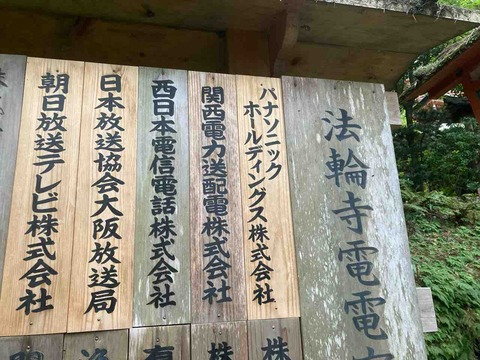 法輪寺電電
パナソニック
ホールディングス株式会社
関西電力送配電株式会社
西日本電信電話株式会社
日本放送協会大阪放送局
朝日放送テレビ株式会社